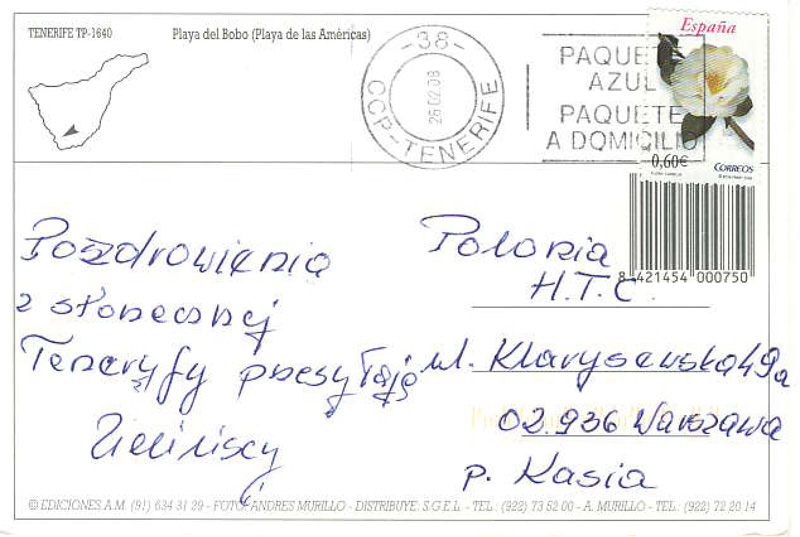 TENERIFE TP-1640
Playa del Bobo (Playa de las Américas)
-38-
CCP-TENERIFE
26 02 08
PAQUETE
AZUL
PAQUETE
A DOMICILIO
España
0,60€
CORREOS
8 421454 000750
Pozdrowienia
z słonecznej
Teneryfy przesyłają
Zielińscy
Polonia
H.T.C.
ul. Klarysewska 49a
02.936 Warszawa
p. Kasia
© EDICIONES A.M. (91) 634 31 29 - FOTO: ANDRES MURILLO - DISTRIBUYE: S.G.E.L. - TEL.: (922) 73 52 00 - A. MURILLO - TEL: (922) 72 20 14